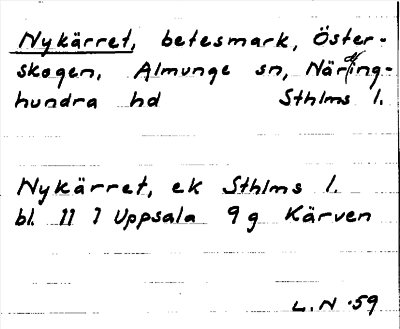 Nykärret, betesmark, Öster-
skogen, Almunge sn, Närding-
hundra hd Sthlms l.
Nykärret, ek Sthlms l.
bl. 11 7 Uppsala 9g Kärven
L.N. 59